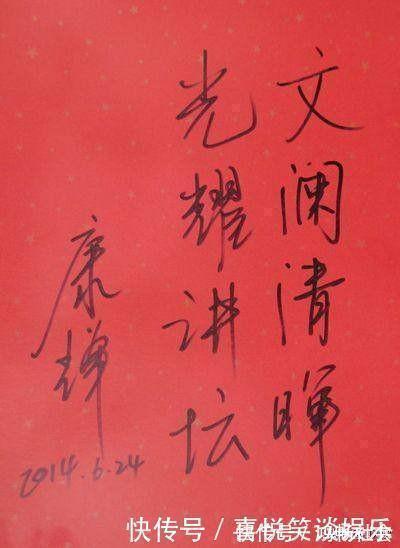 文澜清晖
光耀讲坛
康辉
2014.6.24
快传号／喜悦笑谈娱乐